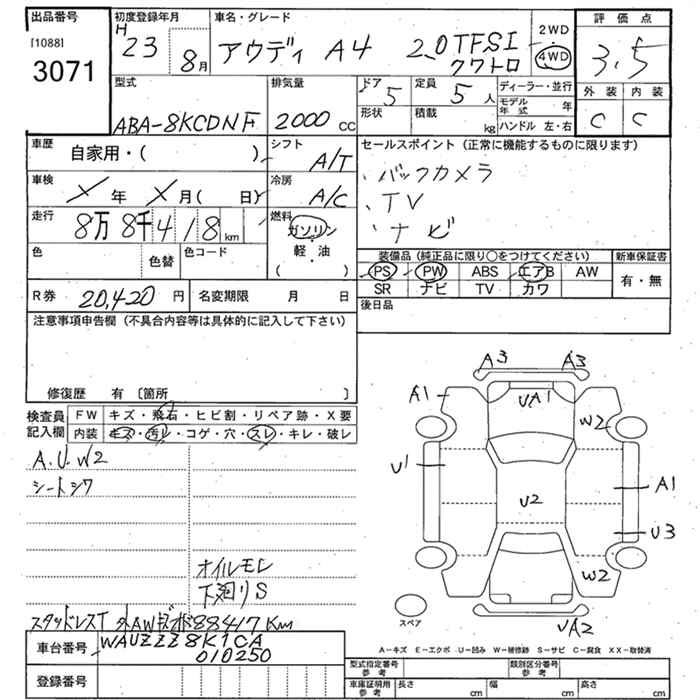 出品番号 初度登録年月 車名・グレード 評価点
[1088] H 2WD
3071 23 8月 アウディ A4 2.0TFSI クワトロ 4WD 3.5
型式 排気量 ドア 定員 ディーラー・並行 外装 内装
ABA-8KCDNF 2000 CC 5 5人 モデル年式 年 C C
形状 積載 kg ハンドル 左・右
車歴 自家用・( ) シフト A/T セールスポイント (正常に機能するものに限ります)
車検 X年 X月( 日) 冷房 A/C ・バックカメラ
・TV
走行 8万8千418km 燃料 ガソリン ・ナビ
・
軽・油
( )
色 色替 色コード 装備品 (純正品に限り○をつけてください) 新車保証書
PS PW ABS エアB AW 有・無
SR ナビ TV カワ
R券 20,420円 名変期限 月 日 後日品
注意事項申告欄 (不具合内容等は具体的に記入して下さい)
修復歴 有 〔箇所 〕
検査員記入欄 FW キズ・飛石・ヒビ割・リペア跡・X要
内装 キズ・汚レ・コゲ・穴・スレ・キレ・破レ
A.U.W2
シートシワ
オイルモレ
下廻りS
スタッドレスT 88417Km
A3 A3
A1 UA1 W2
U1 U2 A1
U3
W2
スペア UA2
A-キズ E-エクボ U-凹み W-補修跡 S-サビ C-腐食 XX-取替済
車台番号 WAUZZZ8K1CA
010250
型式指定番号 参考 類別区分番号 参考
登録番号 車庫証明用 参考 長さ cm 幅 cm 高さ cm